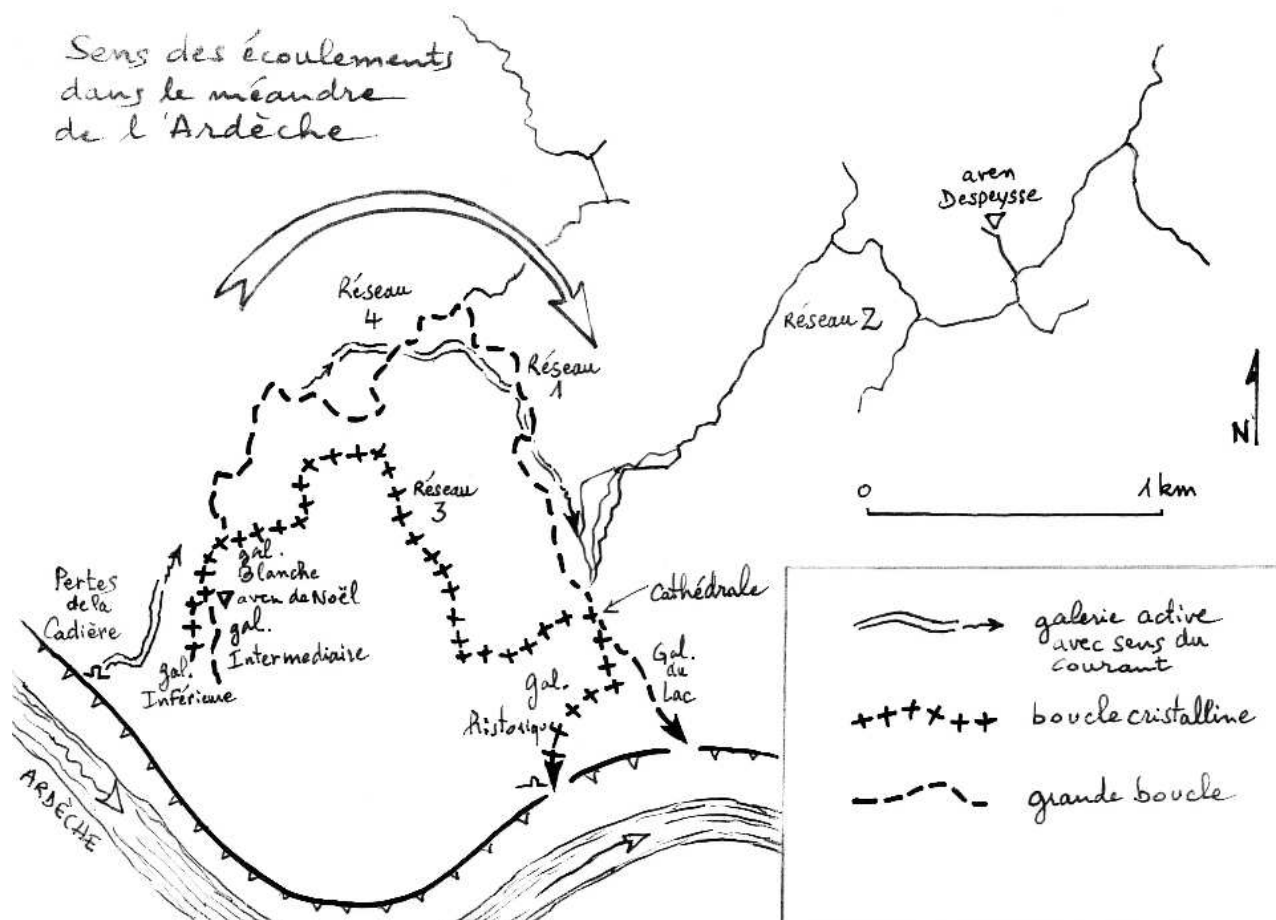 Sens des écoulements
dans le méandre
de l'Ardèche
aven
Despeysse
Réseau
4
Réseau 2
Réseau
1
N
0 1 km
Réseau
3
gal.
Blanche
Pertes
de la
Cadière
aven de Noël
gal.
Intermediaire
gal.
Inférieure
Cathédrale
Gal.
du
Lac
Gal.
Historique
ARDÈCHE
galerie active
avec sens du
courant
boucle cristalline
grande boucle